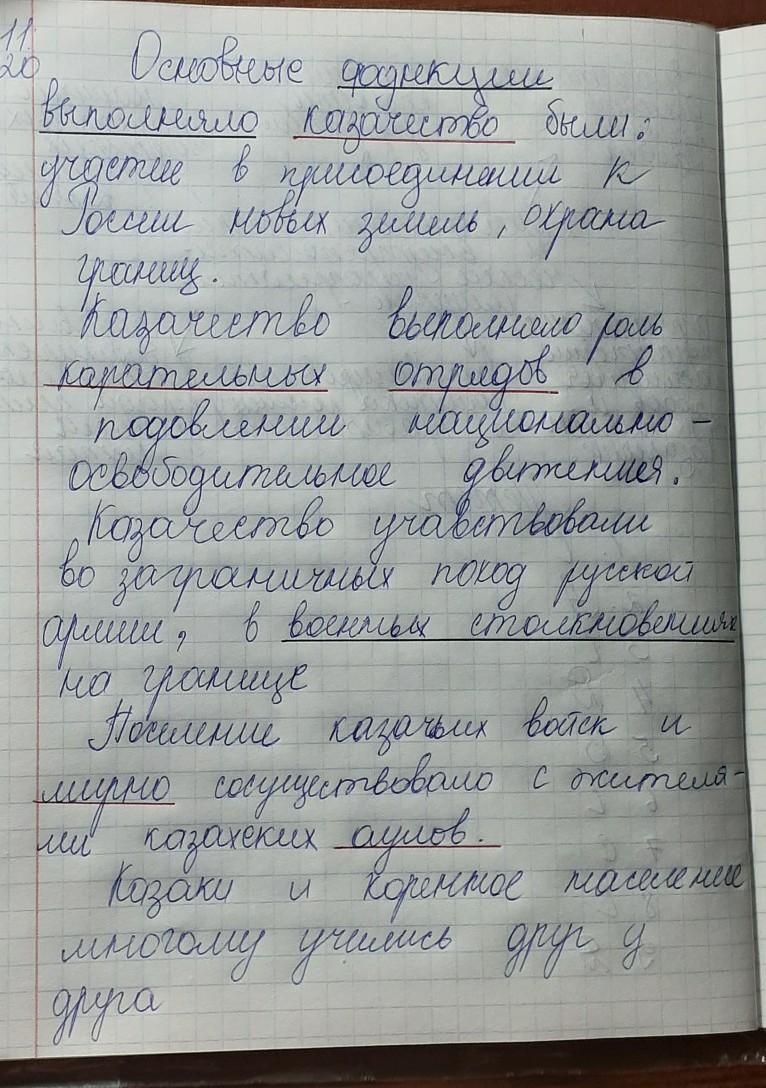 11.
20
Основные фоднкции
выполняло казачество были:
участие в присоединении к
России новых земель, охрана
границ.
Казачество выполняло роль
карательных отрядов в
подовлении национально-
освободительное движения.
Козачество учавствовали
во заграничных поход русской
армии, в военных столкновениях
на границе
Поселение казачьих войск и
мирно сосуществовало с жителя-
ми казахских аулов.
Козаки и коренное население
многому учились друг у
друга